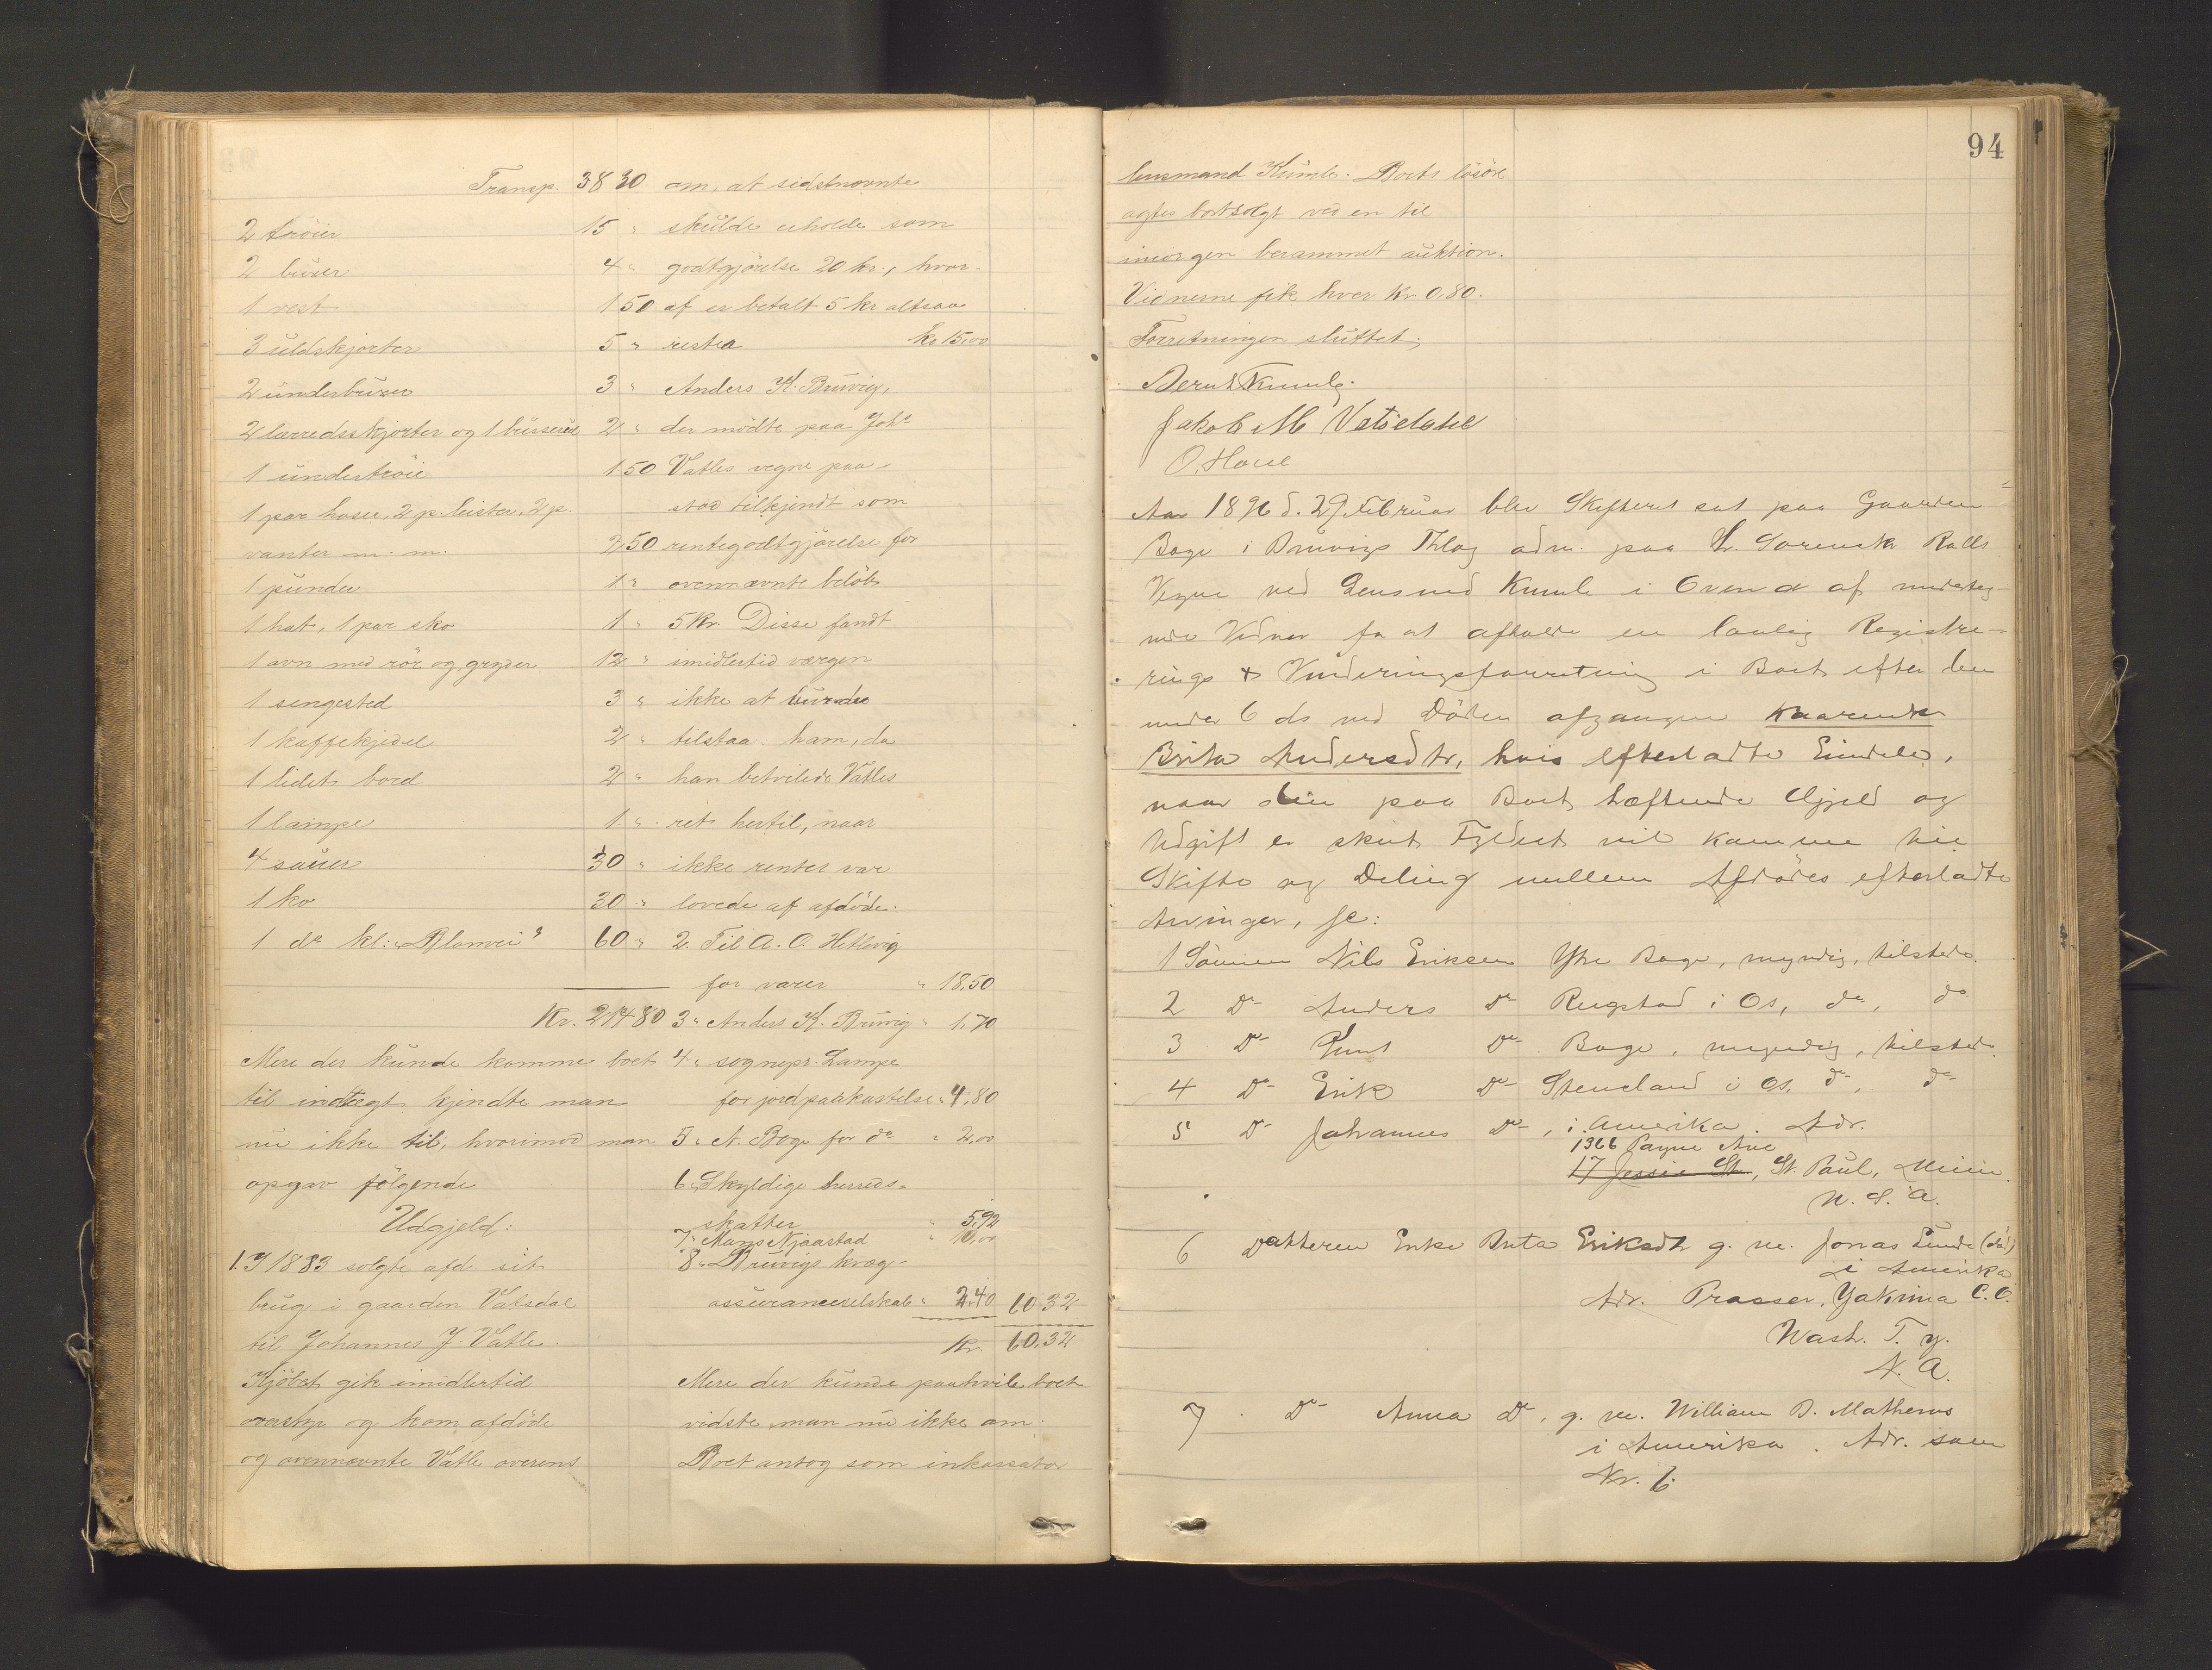 Transp. 38 30
2 tröier 15 "
2 buxer 4 "
1 vest 1 50
3 uldskjorter 5 "
2 underbuxer 3 "
2 lærredsskjorter og 1 2 "
1 undertröie 1 50
1 par hoser, 2 p. leister, 2 p.
vanter m. m. 2 50
1 pundu 1 "
1 hat, 1 par sko 1 "
1 ovn med rör og gryder 12 "
1 sengested 3 "
1 kaffekjedel 2 "
1 lidet bord 2 "
1 lampe 1 "
4 sauer 30 "
1 ko 30 "
1 do kl: "Blomrei" 60 "
Kr. 214 80
Mere der kunde komme boet
til indtægt kjendte man
nu ikke til, hvorimod man
opgav fölgende
Udgjeld:
1. I 1883 solgte afd. sit
brug i gaarden Vatsdal
til Johannes J. Vatle.
Kjöbet gik imidlertid
overstyr og kom afdöde
og ovennævnte Vatle overens
om, at sidstnævnte
skulde erholde som
godtgjörelse 20 kr., hvor-
af er betalt 5 kr altsaa
restea kr 15,00
Anders K. Bruvig,
der mödte paa Johs
Vatles vegne paa-
stod tilkjendt som
rentegodtgjörelse for
ovennævnte belöb
5 Kr. Disse fandt
imidlertid værgen
ikke at burde
tilstaa ham, da
han betvilede Vatles
ret hertil, naar
ikke renter var
lovede af afdöde.
2. Til A. O. Hetlevig
for varer " 18,50
3 " Anders K. Bruvig " 1,70
4 " sognepr. Lampe
for jordpaakastelse " 4,80
5 " A. Boge for do " 2,00
6 " Skyldige herreds-
skatter " 5,92
7 " Mons Njaastad " 10,00
8 " Bruvigs kvæg-
assuranceselskab " 2,40 60 32
Kr. 60,32
Mere der kunde paahvile boet
vidste man nu ikke om.
Boet antog som inkassator
94
lensmand Kumle. Boets lösöre
agtes bortsolgt ved en til
imorgen berammet auktion.
Vidnerne fik hver Kr. 0,80.
Forretningen sluttet;
Bernt Kumle.
Jakob M Vatsdal
O. Houe
Aar 1896 d. 29 Februar blev Skifteret sat paa Gaarden
Boge i Bruvigs Thlag adm. paa Hr. Sorensk. Rolls
Vegne ved Lensmd Kumle i Overvær af underteg-
nede Vidner for at afholde en lovlig Registre-
rings & Vurderingsforretning i Boet efter den
under 6 ds ved Döden afgangne Kaarenke
Brita Andersdtr, hvis efterladte Eiendele,
naar den paa Boet hæftende Gjæld og
Udgift er skeet Fyldest vil komme til
Skifte og Deling mellem Afdödes efterladte
Arvinger, se:
1 Sönnen Nils Eriksen Ytre Boge, myndig, tilstede.
2 Do Anders Do Rugstad i Os, do, do
3 Do Knut Do Boge, myndig, tilstede.
4 Do Erik Do Steneland i Os, do, do
5 Do Johannes Do, i Amerika. Adr.
1366 Payne Ave
17 Jessie St., St. Paul, Minn.
N. S. A.
6 Datteren Enke Brita Eriksdtr g. m. Jonas Lunde (död)
i Amerika
Adr. Prosser, Yakima C. O.
Wash. T. y.
N. A.
7 Do Anna do, g. m. William D. Mathews
i Amerika. Adr. som
Nr. 6.